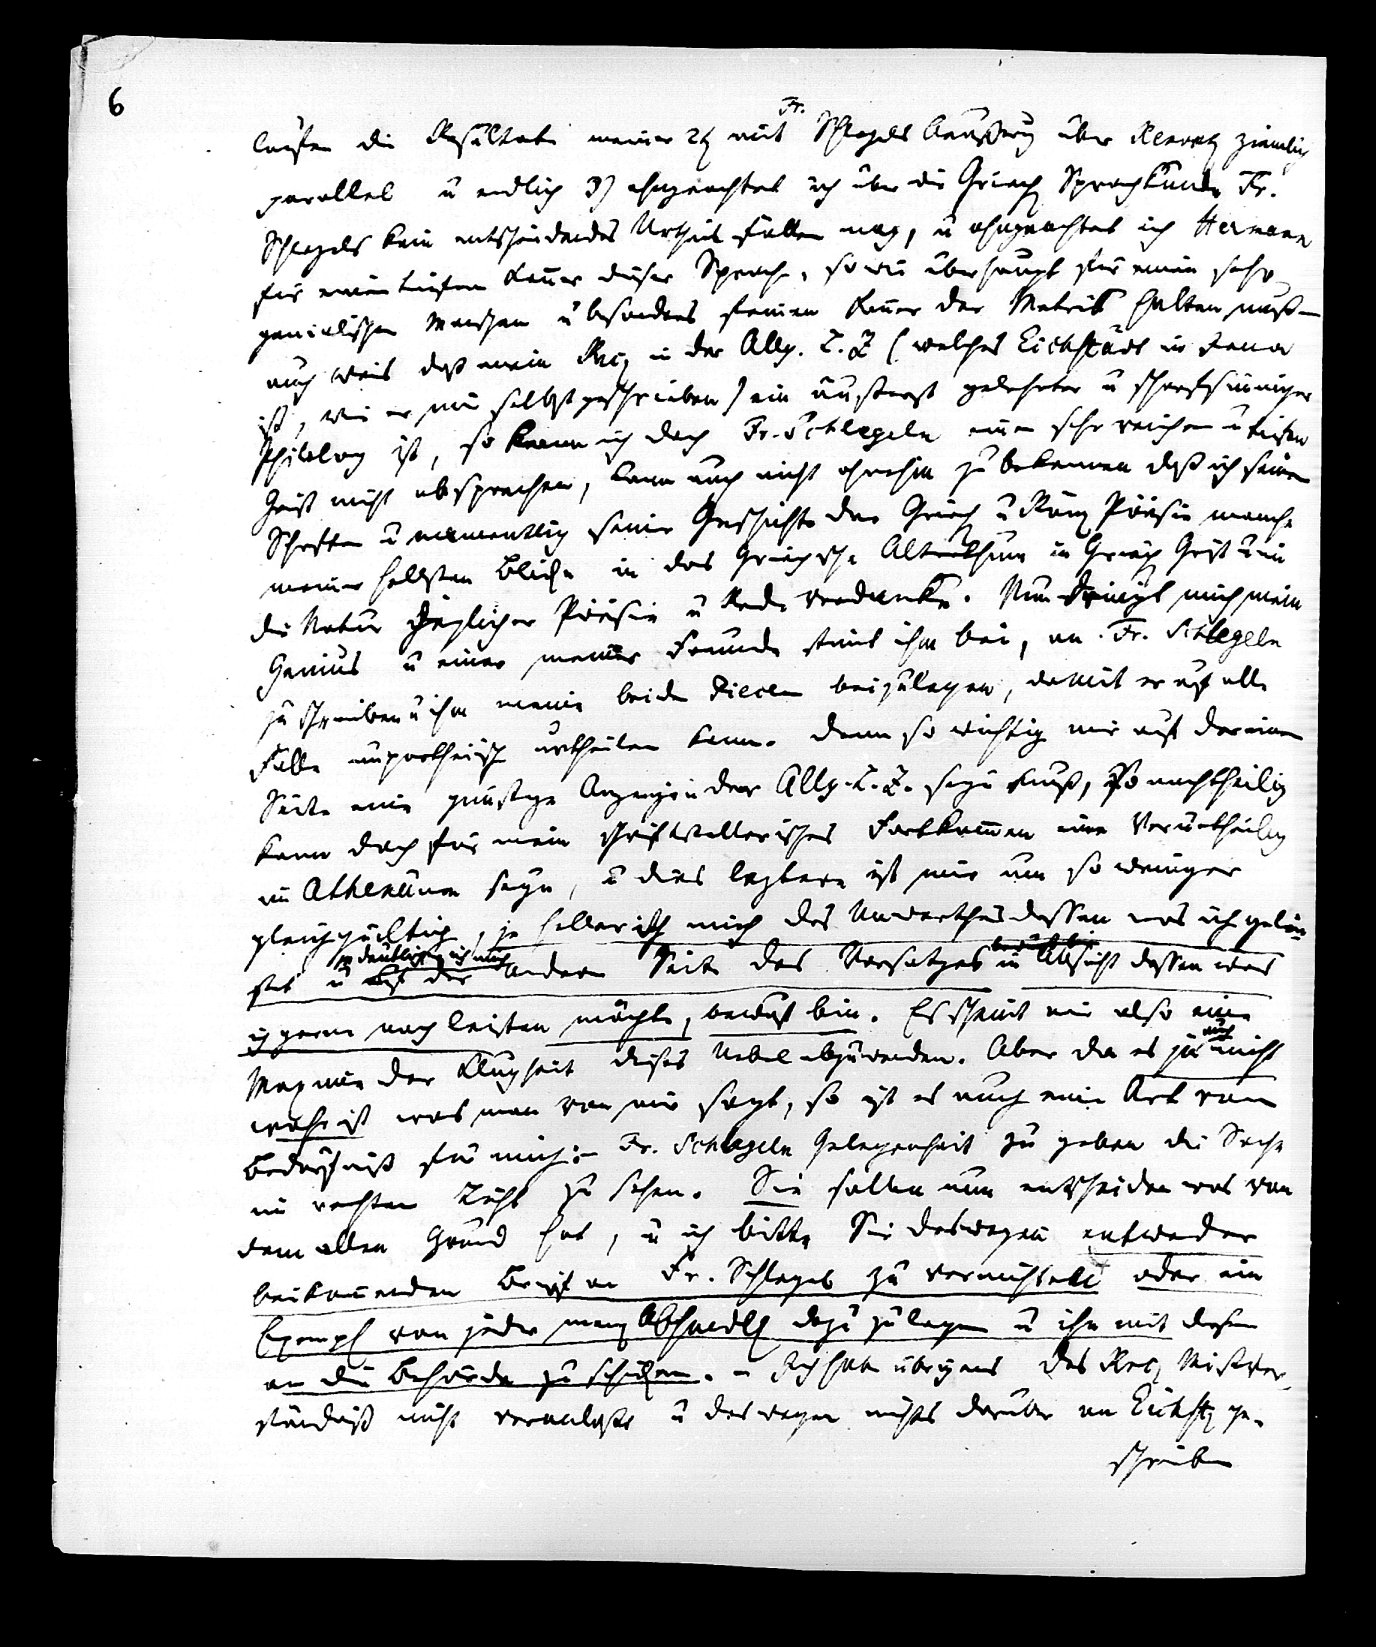 6
laufen die Resultate meiner 2ten mit Fr. Schlegels Aeußerung über ziemlich
parallel u endlich 3) ohngeachtet ich über die Griech Sprachkunde Fr.
Schlegels kein entscheidendes Urtheil fällen mag, u ohngeachtet ich Hermann
für einen tiefen Kenner dieser Sprache, so wie überhaupt für einen sehr
genialischen Menschen u besonders feinen Kenner der Metrik halten muß –
auch weis daß mein Rec in der Allg. L.Z (welches Eichstädt in Jena
ist, wie er mir selbst geschrieben) ein äußerst gelehrter u scharfsinniger
Philolog ist, so kann ich doch Fr. Schlegeln einen sehr reichen u tiefen
Geist nicht absprechen, kann auch nicht umhin zu bekennen daß ich seinen
Schriften u namentlich seiner Geschichte der Griech u Röm Poësie manche
meiner hellsten Blicke in das Griechische Alterthum in Griech Geist u in
die Natur jeglicher Poësie u Rede verdanke. Nun dringt mich mein
Genius u einer meiner Freunde stimt ihm bei, an Fr. Schlegeln
zu schreiben u ihm meine beiden Piecen beizulegen, damit er auf alle
Fälle unpartheiisch urtheilen kann. Denn so wichtig mir auf der einen
Seite eine günstge Anzeige in der Allg. L.Z. seyn muß, so nachtheilig
kann doch für mein schriftstellerisches Fortkommen eine Verurtheilung
im Athenäum seyn, u dies leztere ist mir um so weniger
gleichgültig, je heller ich mich des Unwerthes dessen was ich gelei-
stet u je deutlicher ich mich auf der andern Seite des Vorsatzes u Absicht dessen was
ich gern noch leisten möchte, bewußt bin. Es scheint mir also eine
Maxime der Klugheit dieses Uebel abzuwenden. Aber da es ja auch nicht
wahr ist was man von mir sagt, so ist es auch eine Art von
Bedürfniß für mich: Fr. Schlegeln Gelegenheit zu geben die Sache
im rechten Licht zu sehen. Sie sollen nun entscheiden was von
dem allen Grund hat, u ich bitte Sie deswegen entweder
beikommenden Brief an Fr. Schlegel zu vernichten oder ein
Exempl von jeder mein Abhandlg dazu zulegen u ihn mit diesen
an die Behörde zu schicken. – Ich habe übrigens das Rec Mißver-
ständniß nicht veranlaßt u deswegen nichts darüber an Eichst ge-
schrieben